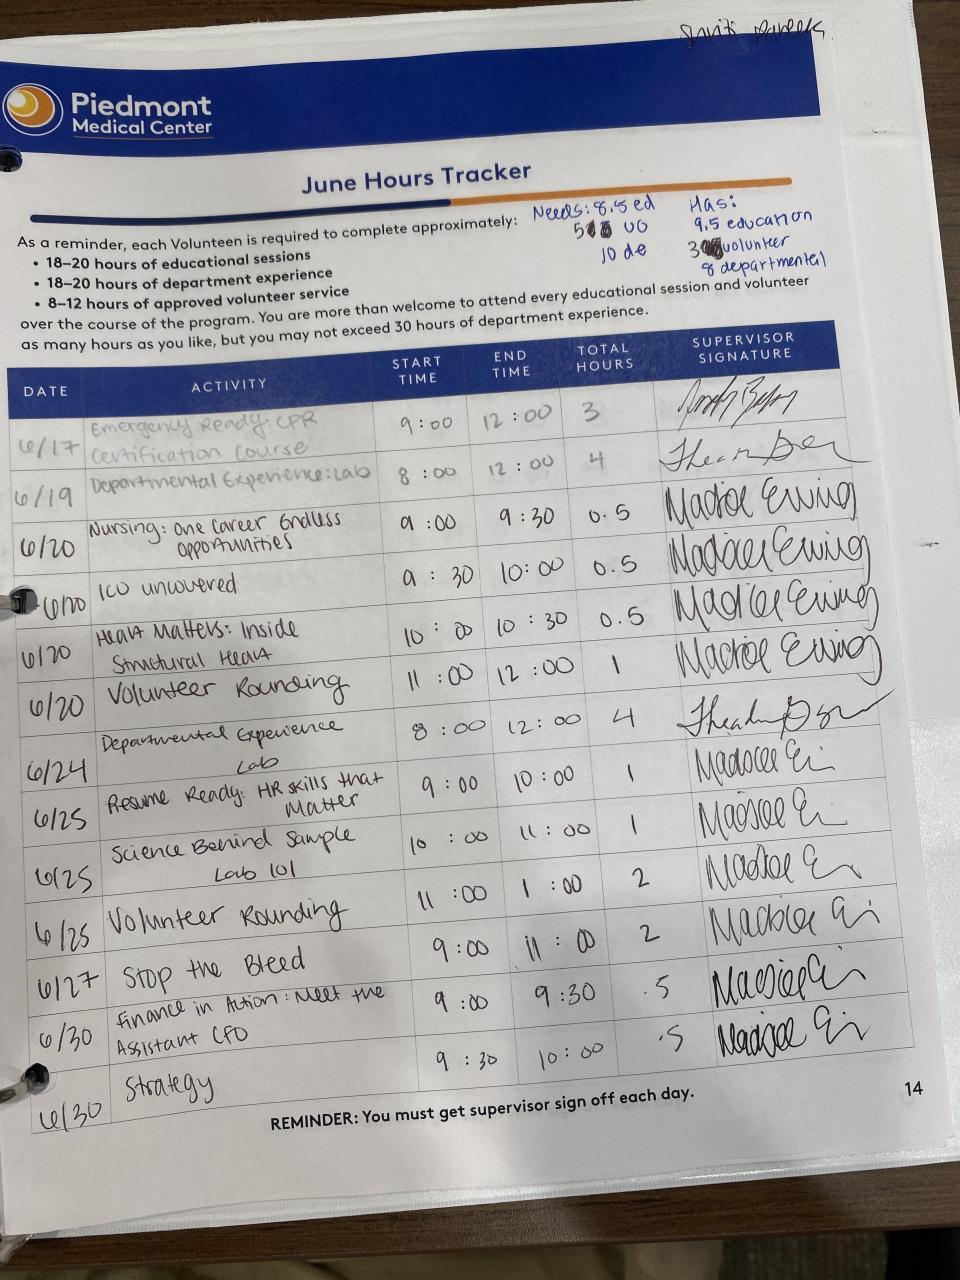 Piedmont
Medical Center
June Hours Tracker
Needs: 8.5 ed
5 vo
10 de
Has:
9.5 education
3 volunteer
8 departmental
As a reminder, each Volunteen is required to complete approximately:
• 18–20 hours of educational sessions
• 18–20 hours of department experience
• 8–12 hours of approved volunteer service
over the course of the program. You are more than welcome to attend every educational session and volunteer
as many hours as you like, but you may not exceed 30 hours of department experience.
DATE ACTIVITY START TIME END TIME TOTAL HOURS SUPERVISOR SIGNATURE
6/17 Emergency Ready: CPR Certification Course 9:00 12:00 3
6/19 Departmental Experience: Lab 8:00 12:00 4
6/20 Nursing: One Career Endless opportunities 9:00 9:30 0.5 Ewing
6/20 ICU uncovered 9:30 10:00 0.5 Ewing
6/20 Heart Matters: Inside Structural Heart 10:00 10:30 0.5 Ewing
6/20 Volunteer Rounding 11:00 12:00 1 Ewing
6/24 Departmental Experience Lab 8:00 12:00 4
6/25 Resume Ready: HR skills that Matter 9:00 10:00 1
6/25 Science Behind Sample Lab 101 10:00 11:00 1
6/25 Volunteer Rounding 11:00 1:00 2
6/27 Stop the Bleed 9:00 11:00 2
6/30 Finance in Action: Meet the Assistant CFO 9:00 9:30 .5
6/30 Strategy 9:30 10:00 .5
REMINDER: You must get supervisor sign off each day.
14